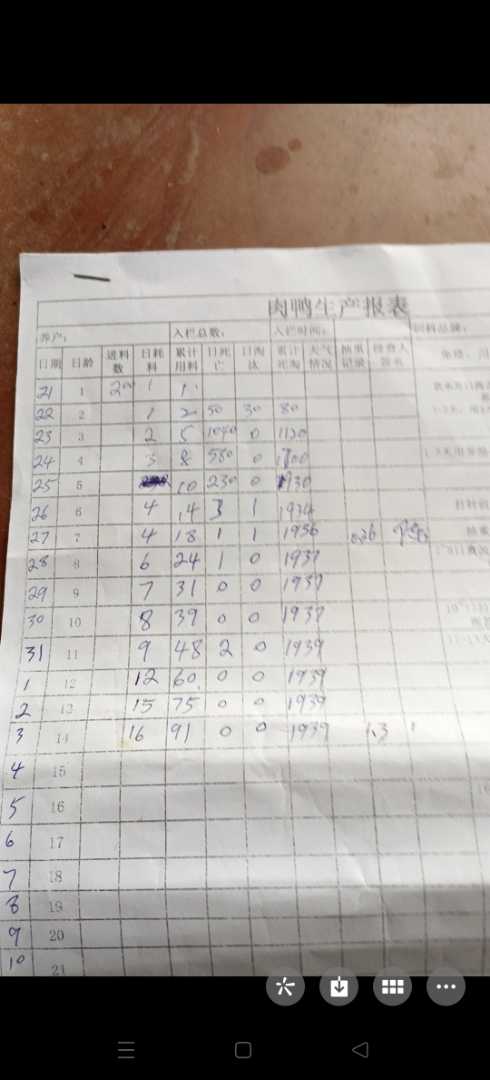 肉鸭生产报表
养户： 入栏总数： 入栏时间： 饲料品牌：
日期 日龄 进料数 日耗料 累计用料 日死亡 日淘汰 累计死淘 天气情况 抽重记录 检查人签名
21 1 200 1 1
22 2 1 2 50 30 80
23 3 2 5 1040 0 1120
24 4 3 8 580 0 1700
25 5 10 230 0 1930
26 6 4 14 3 1 1934
27 7 4 18 1 1 1936
28 8 6 24 1 0 1937
29 9 7 31 0 0 1937
30 10 8 39 0 0 1937
31 11 9 48 2 0 1939
1 12 12 60 0 0 1939
2 13 15 75 0 0 1939
3 14 16 91 0 0 1939 1.3
4 15
5 16
6 17
7 18
8 19
9 20
10 21